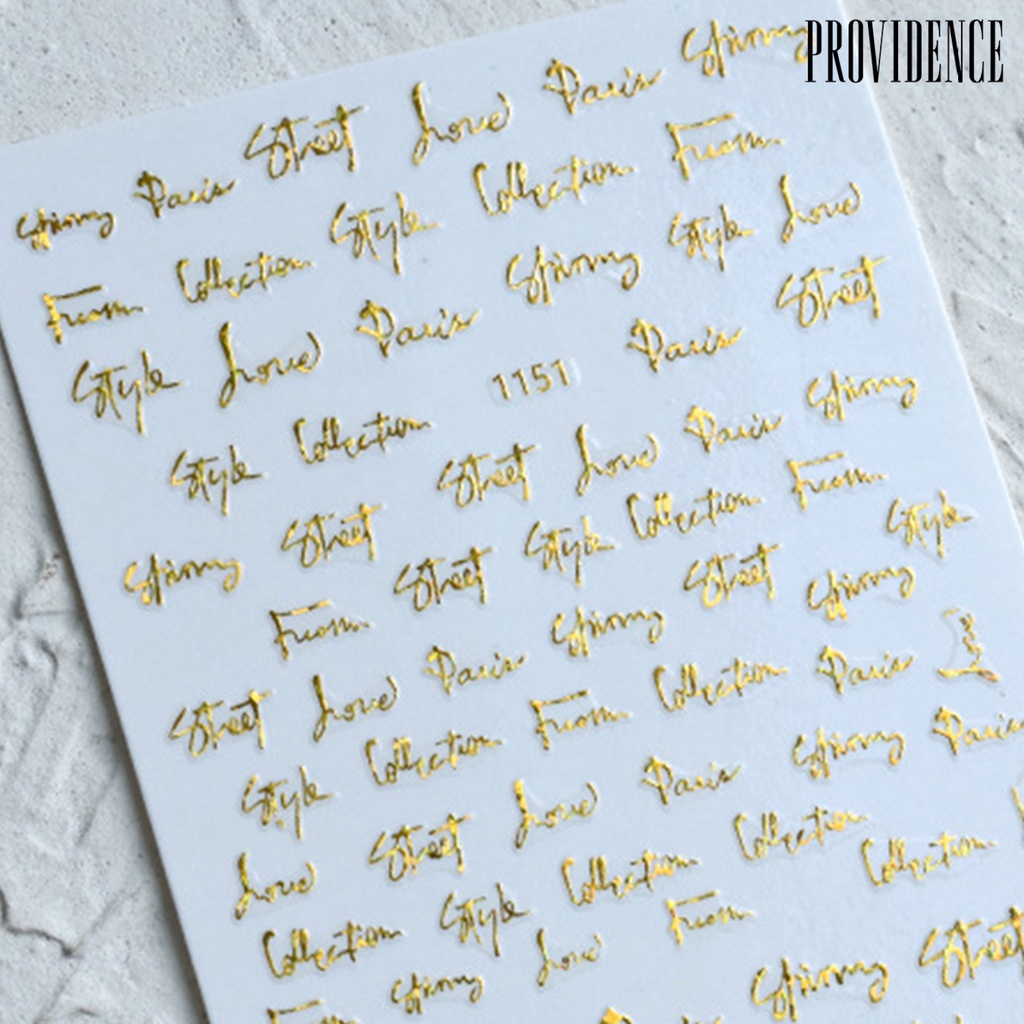 PROVIDENCE
Paris Street Love Paris
From Collection Style Collection From
Style Love Paris Style Love
Style Collection 1151 Paris Street
Street Street Love Paris
From Street Style Collection From
Street Love Paris Street Style
Style Collection From Collection Paris Love
Love Street Love Paris Paris
Collection Style Collection Collection Collection
Love From
Street